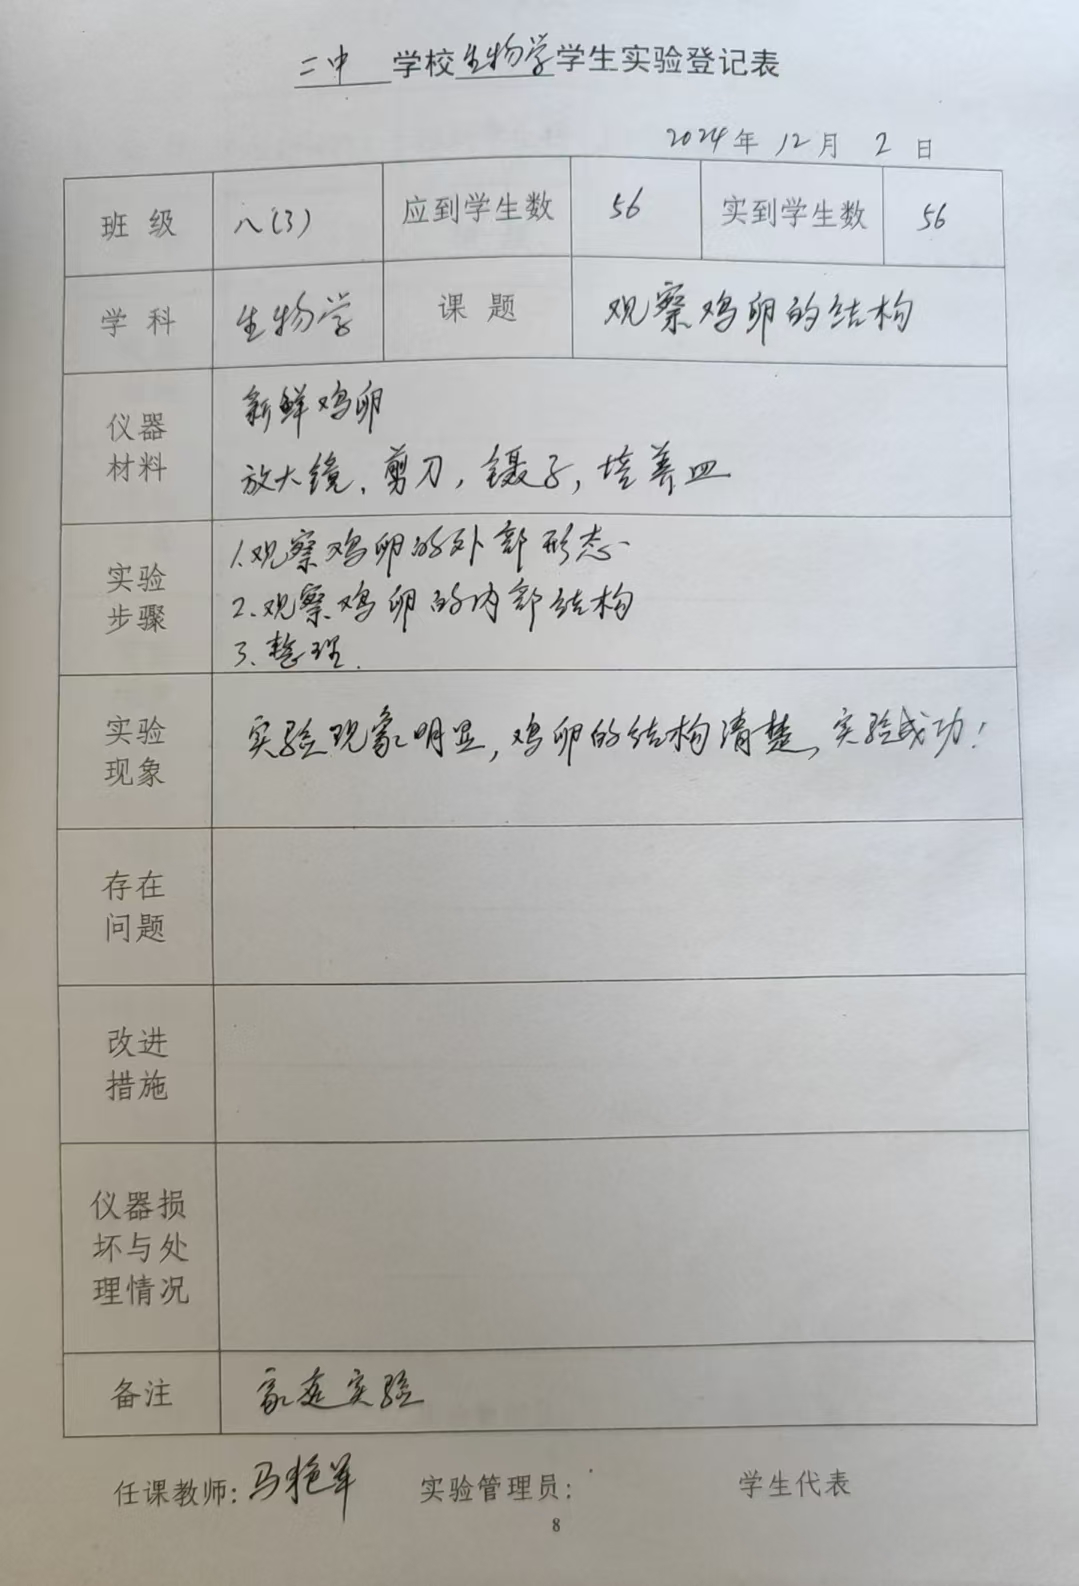 二中 学校 生物学 学生实验登记表
2024年 12月 2 日
班 级 八(3) 应到学生数 56 实到学生数 56
学 科 生物学 课 题 观察鸡卵的结构
仪器
材料
新鲜鸡卵
放大镜、剪刀，镊子，培养皿
实验
步骤
1.观察鸡卵的外部形态
2.观察鸡卵的内部结构
3.整理.
实验
现象
实验现象明显，鸡卵的结构清楚，实验成功！
存在
问题
改进
措施
仪器损
坏与处
理情况
备注 家庭实验
任课教师：马艳军 实验管理员： 学生代表
8